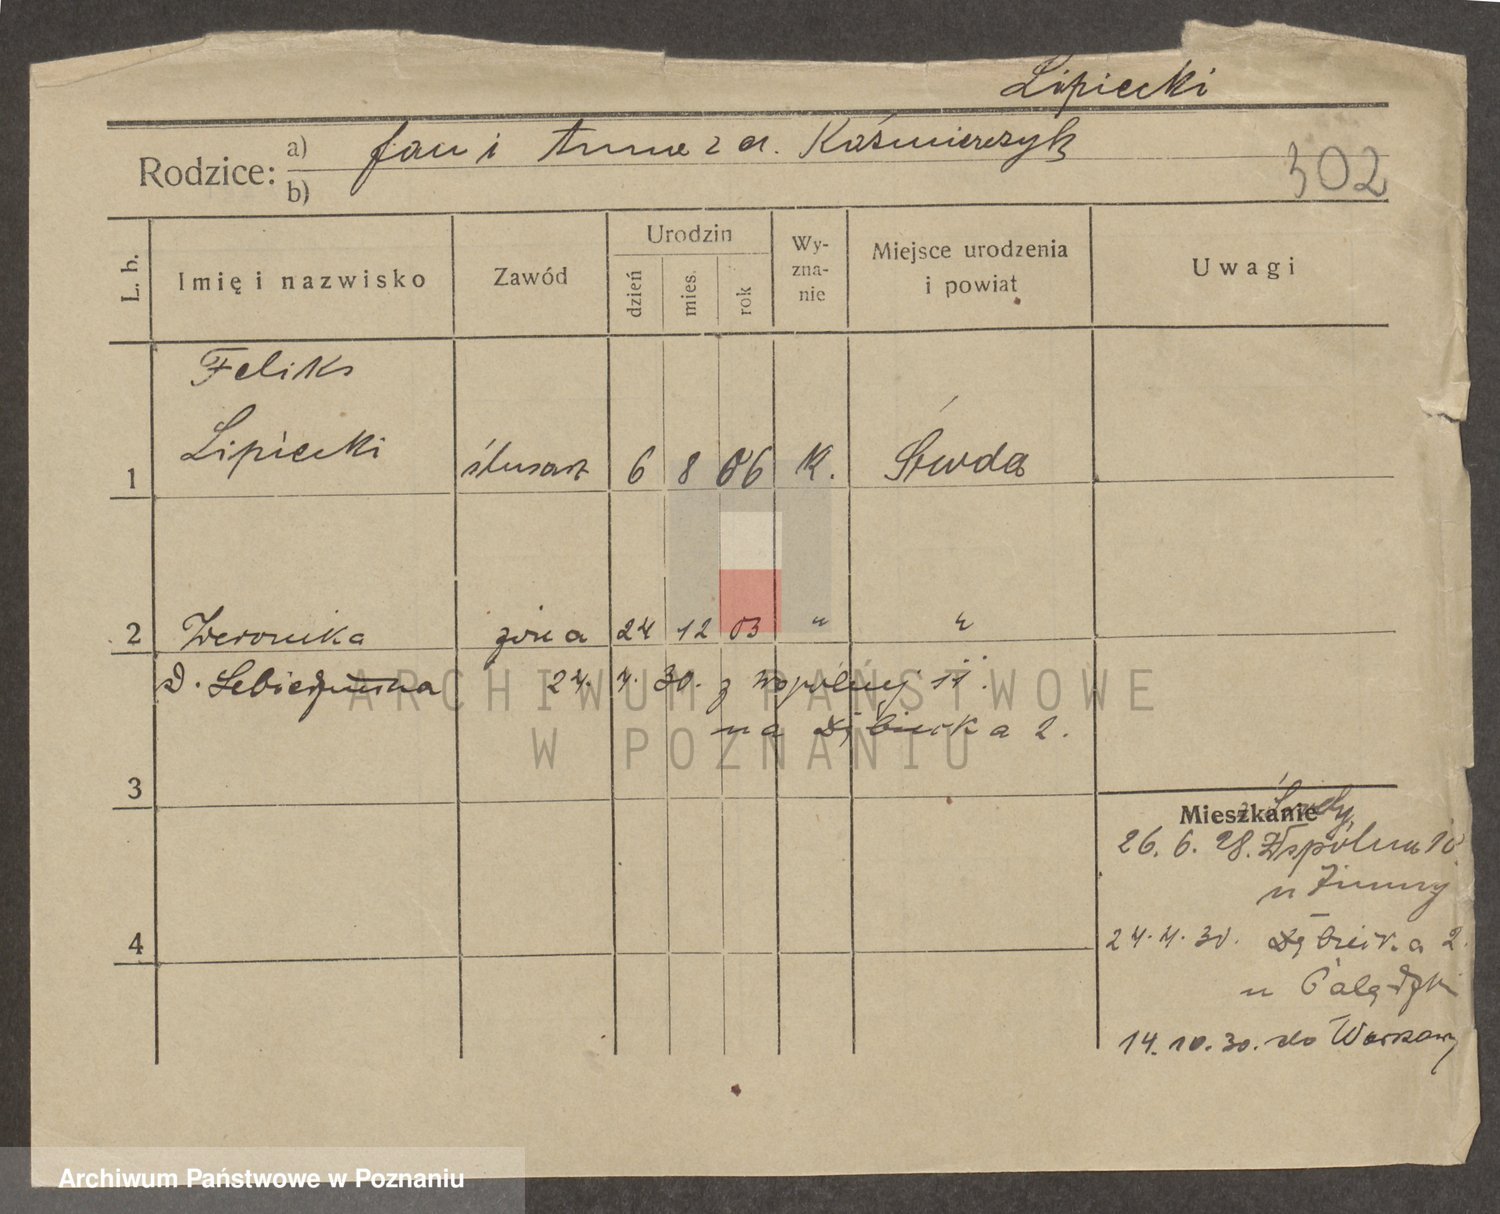 Lipiecki
Rodzice: a) Jan i Anna z d. Kaśmierczyk
b)
302
L. b.
Imię i nazwisko
Zawód
Urodzin
dzień
mies.
rok
Wy-
zna-
nie
Miejsce urodzenia
i powiat
Uwagi
Feliks
1 Lipiecki ślusarz 6 8 06 K.
2 Weronika żona 24 12 03 " "
24. 4. 30. z Wspólnej 11.
na Dębiecka 2.
3
Mieszkanie
26. 6. 28. Wspólna
u Zimny
4
24. 4. 30. Dębiecka 2.
u
14. 10. 30. do Warszawy
ARCHIWUM PAŃSTWOWE
W POZNANIU
Archiwum Państwowe w Poznaniu